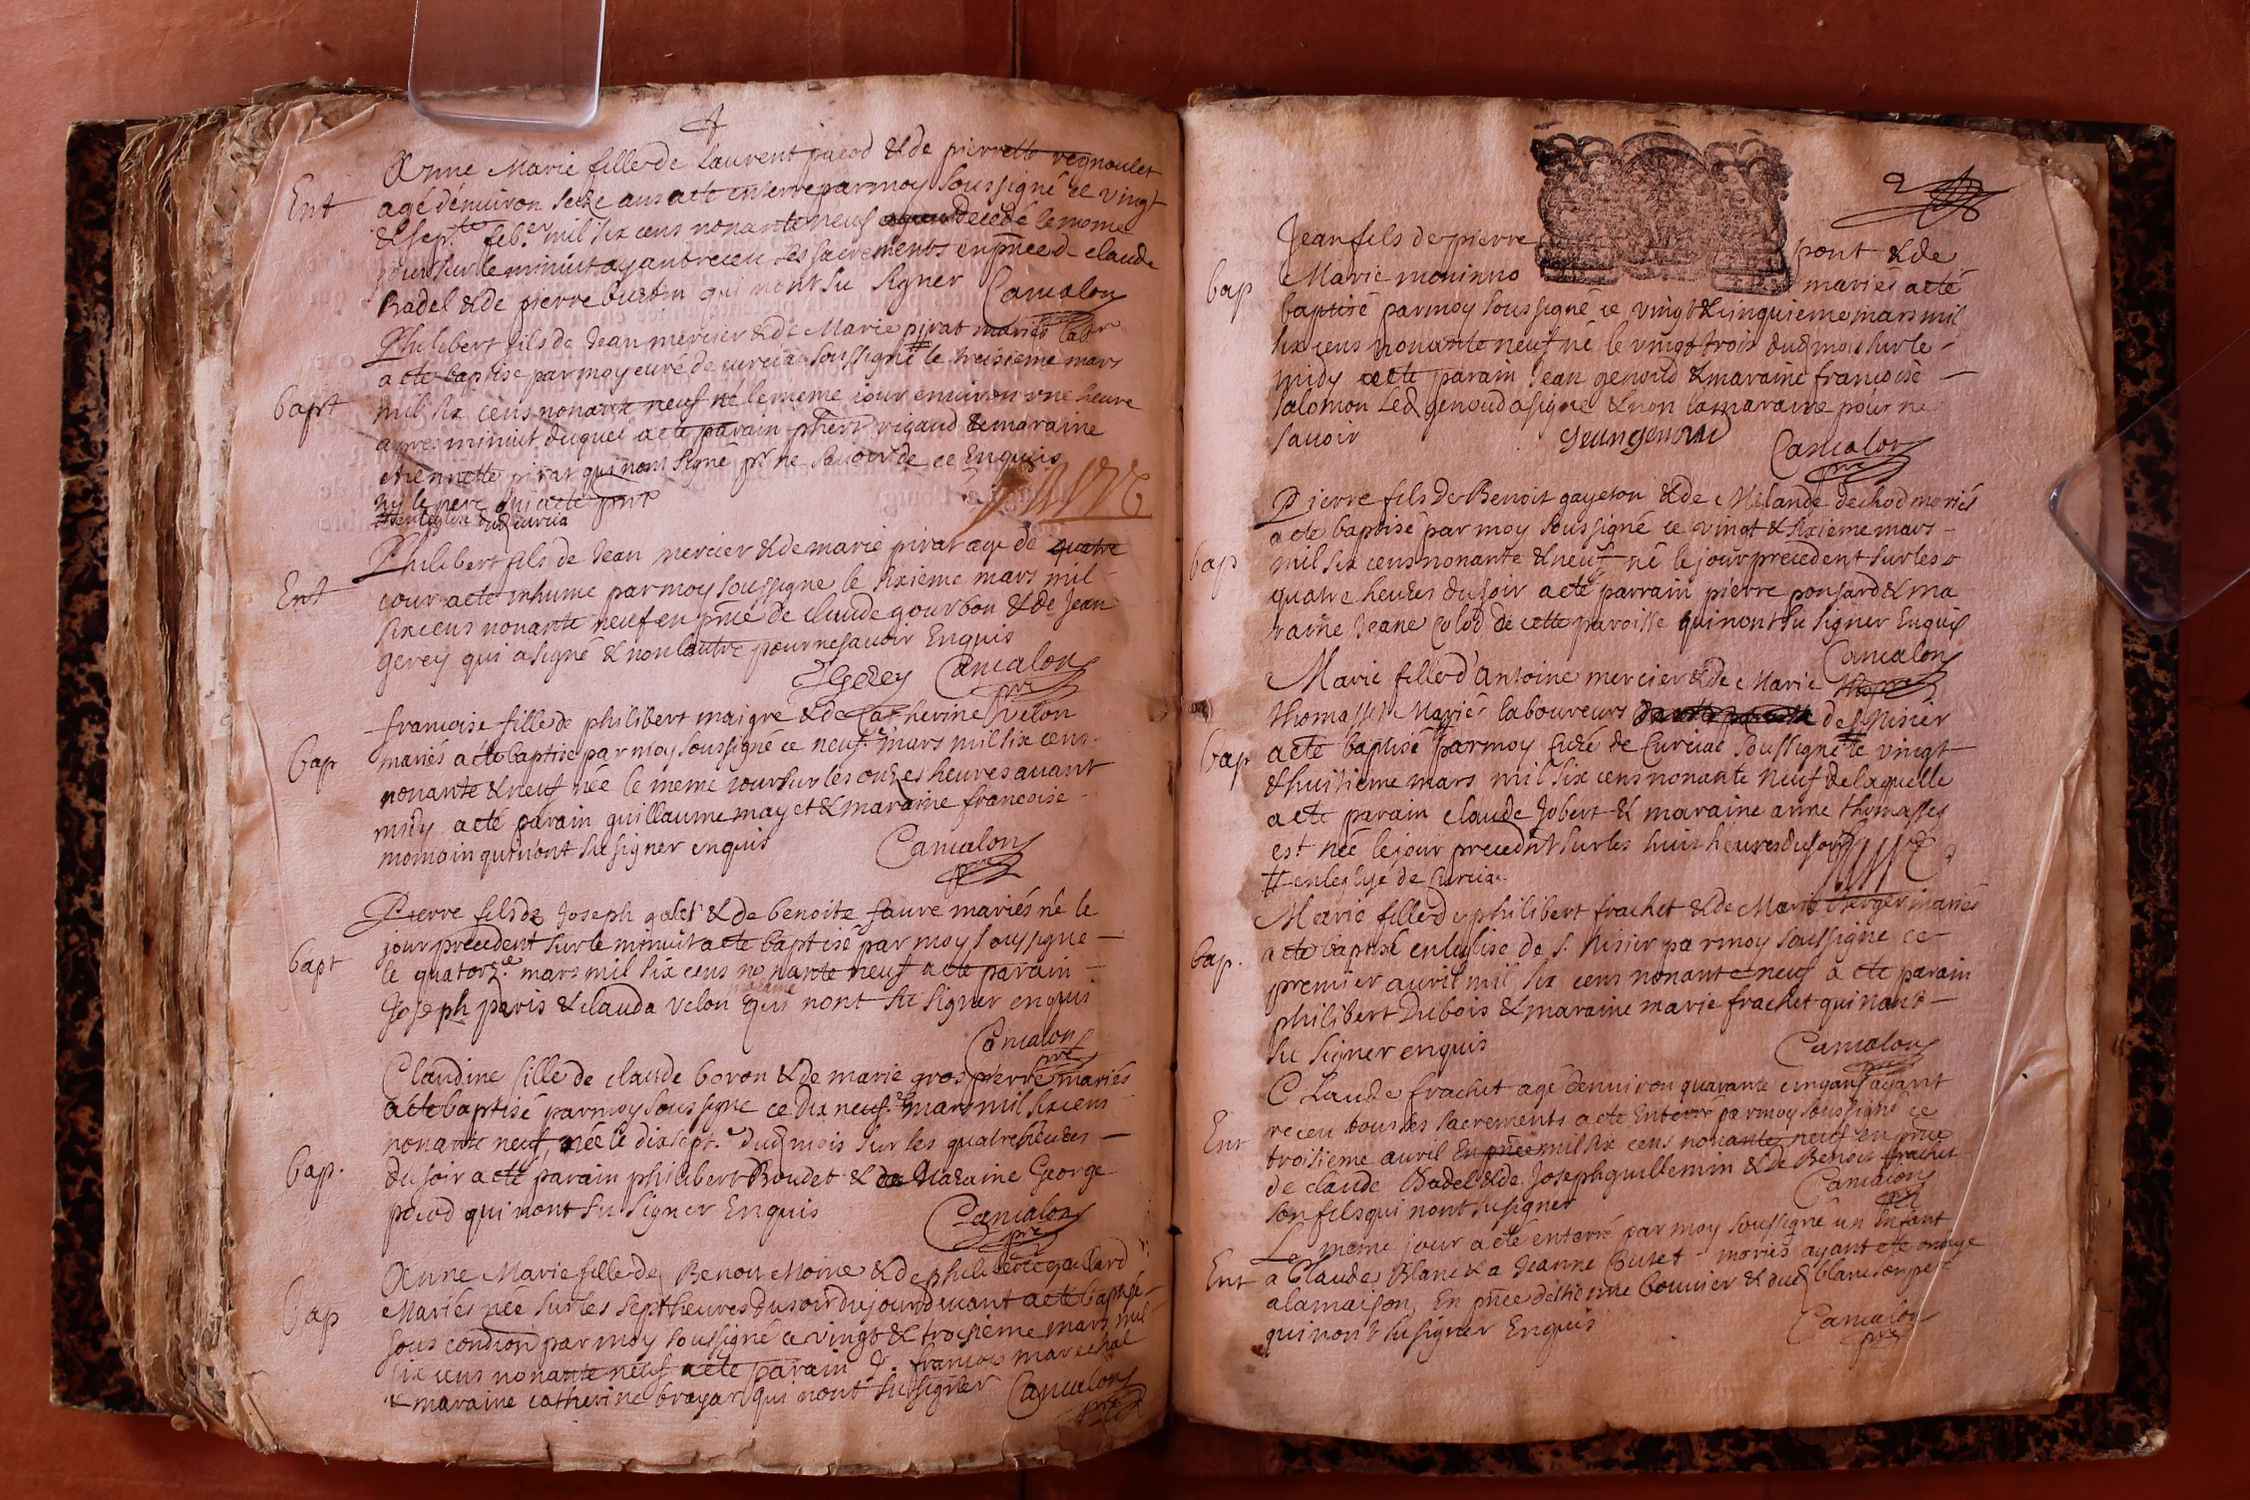 Anne Marie fille de Laurent pacod & de pierrette regnoulet
Ent
agé dénuiron seize ans a eté enterré par moy soussigné ce vingt
& sep.te feb.er mil six cens nonante neuf decedé le meme
jour sur le minuit ayant receu les sacrements en pñce de claude
Badel & de pierre buzon qui nont su signer Camalon
Philibert fils de Jean mercier & de Marie pirat mariés
a eté baptisé par moy curé de curcia soussigné le treisieme mars
bapt
mil six cens nonante neuf né le meme jour enuiron vne heure
apres minuit duquel a eté parain phert rigaud & maraine
etiennette pirat qui nont signé pr ne sauoir de ce Enquis
ny le pere qui a eté pnt
en leglise dud curcia
Philibert fils de Jean mercier & de marie pirat agé de quatre
Ent
jour a eté inhumé par moy soussigné le sixieme mars mil
six cens nonante neuf en pñce de claude gourbon & de Jean
gerey qui a signé & non lautre pour ne sauoir Enquis
JGerey Camalon pre
francoise fille de philibert maigre & de Catherine velon
Bap
mariés a eté baptisé par moy soussigné ce neuf.e mars mil six cens
nonante & neuf née le meme jour sur les onzes heures auant
midy a eté parain guillaume mayet & maraine francoise
momain qui nont su signer enquis Camalon
pre
Pierre fils de Joseph galet & de benoite faure mariés né le
jour precedent sur le minuit a eté baptisé par moy soussigné
bapt
le quatorz.e mars mil six cens nonante neuf a eté parain
Joseph paris & clauda velon maraine qui nont su signer enqui
Camalon
pre
Claudine fille de claude boron & de marie grospierre mariés
a eté baptisé par moy soussigné ce dix neuf.e mars mil six cens
nonante neuf, née le dixsept.e dud mois sur les quatre heures
bap.
du soir a eté parain philibert Boudet & Maraine George
pacod qui nont su signer Enquis Camalon
pre
Anne Marie fille de Benoit Moine & de philiberte gaillard
Bap
Mariés née sur les sept heures du soir du jour deuant a eté baptisé
sous condion par moy soussigné ce vingt & troisieme mars mil
six cens nonante neuf a eté parain francois marechal
& maraine catherine brayar qui nont su signer Camalon
pre
2
Jean fils de pierre pont & de
bap
Marie moninno mariés a eté
baptisé par moy soussigné ce vingt & cinquieme mars mil
six cens nonante neuf né le vingt trois dud mois sur le
midy a eté parain Jean genoud & maraine francoise
salomon led genoud a signé & non la maraine pour ne
sauoir Jean genoud Camalon
pre
Pierre fils de Benoit gayeton & de Melande dechod mariés
a eté baptisé par moy soussigné ce vingt & sixieme mars
bap
mil six cens nonante & neuf né le jour precedent sur les
quatre heures du soir a eté parrain pierre ponsard & ma
raine Jeane colod de cette paroisse qui nont su signer Enquis
Camalon
Marie fille d'Antoine mercier & de Marie
thomasset Mariés laboureurs de st Nisier
bap
a eté baptisé par moy curé de Curciat soussigné le vingt
& huitieme mars mil six cens nonante neuf de laquelle
a eté parain claude Jobert & maraine anne thomasset
est née le jour precedent sur les huit heures du soir
en leglise de Curcia
Marie fille de philibert frachet & de Marie berger mariés
bap.
a eté baptisé en leglise de s.t Nisier par moy soussigné ce
premier auril mil six cens nonante neuf a eté parain
philibert Dubois & maraine marie frachet qui nont
su signer enquis Camalon
pre
Claude frachet agé denuiron quarante cinq ans ayant
receu tous les sacrements a eté Enterré par moy soussigné ce
Ent
troisieme auril en pñce mil six cens nonante neuf en pñce
de claude Badel & de Joseph guillemin & de Benoit frachet
son fils qui nont su signer Camalon
pre
Le meme jour a eté enterré par moy soussigné un Enfant
Ent
a Claude Blanc & a Jeanne Buret mariés ayant eté ondoyé
a la maison, En pñce detienne bouuier & dud blanc son pere
qui nont su signer Enquis Camalon
pre